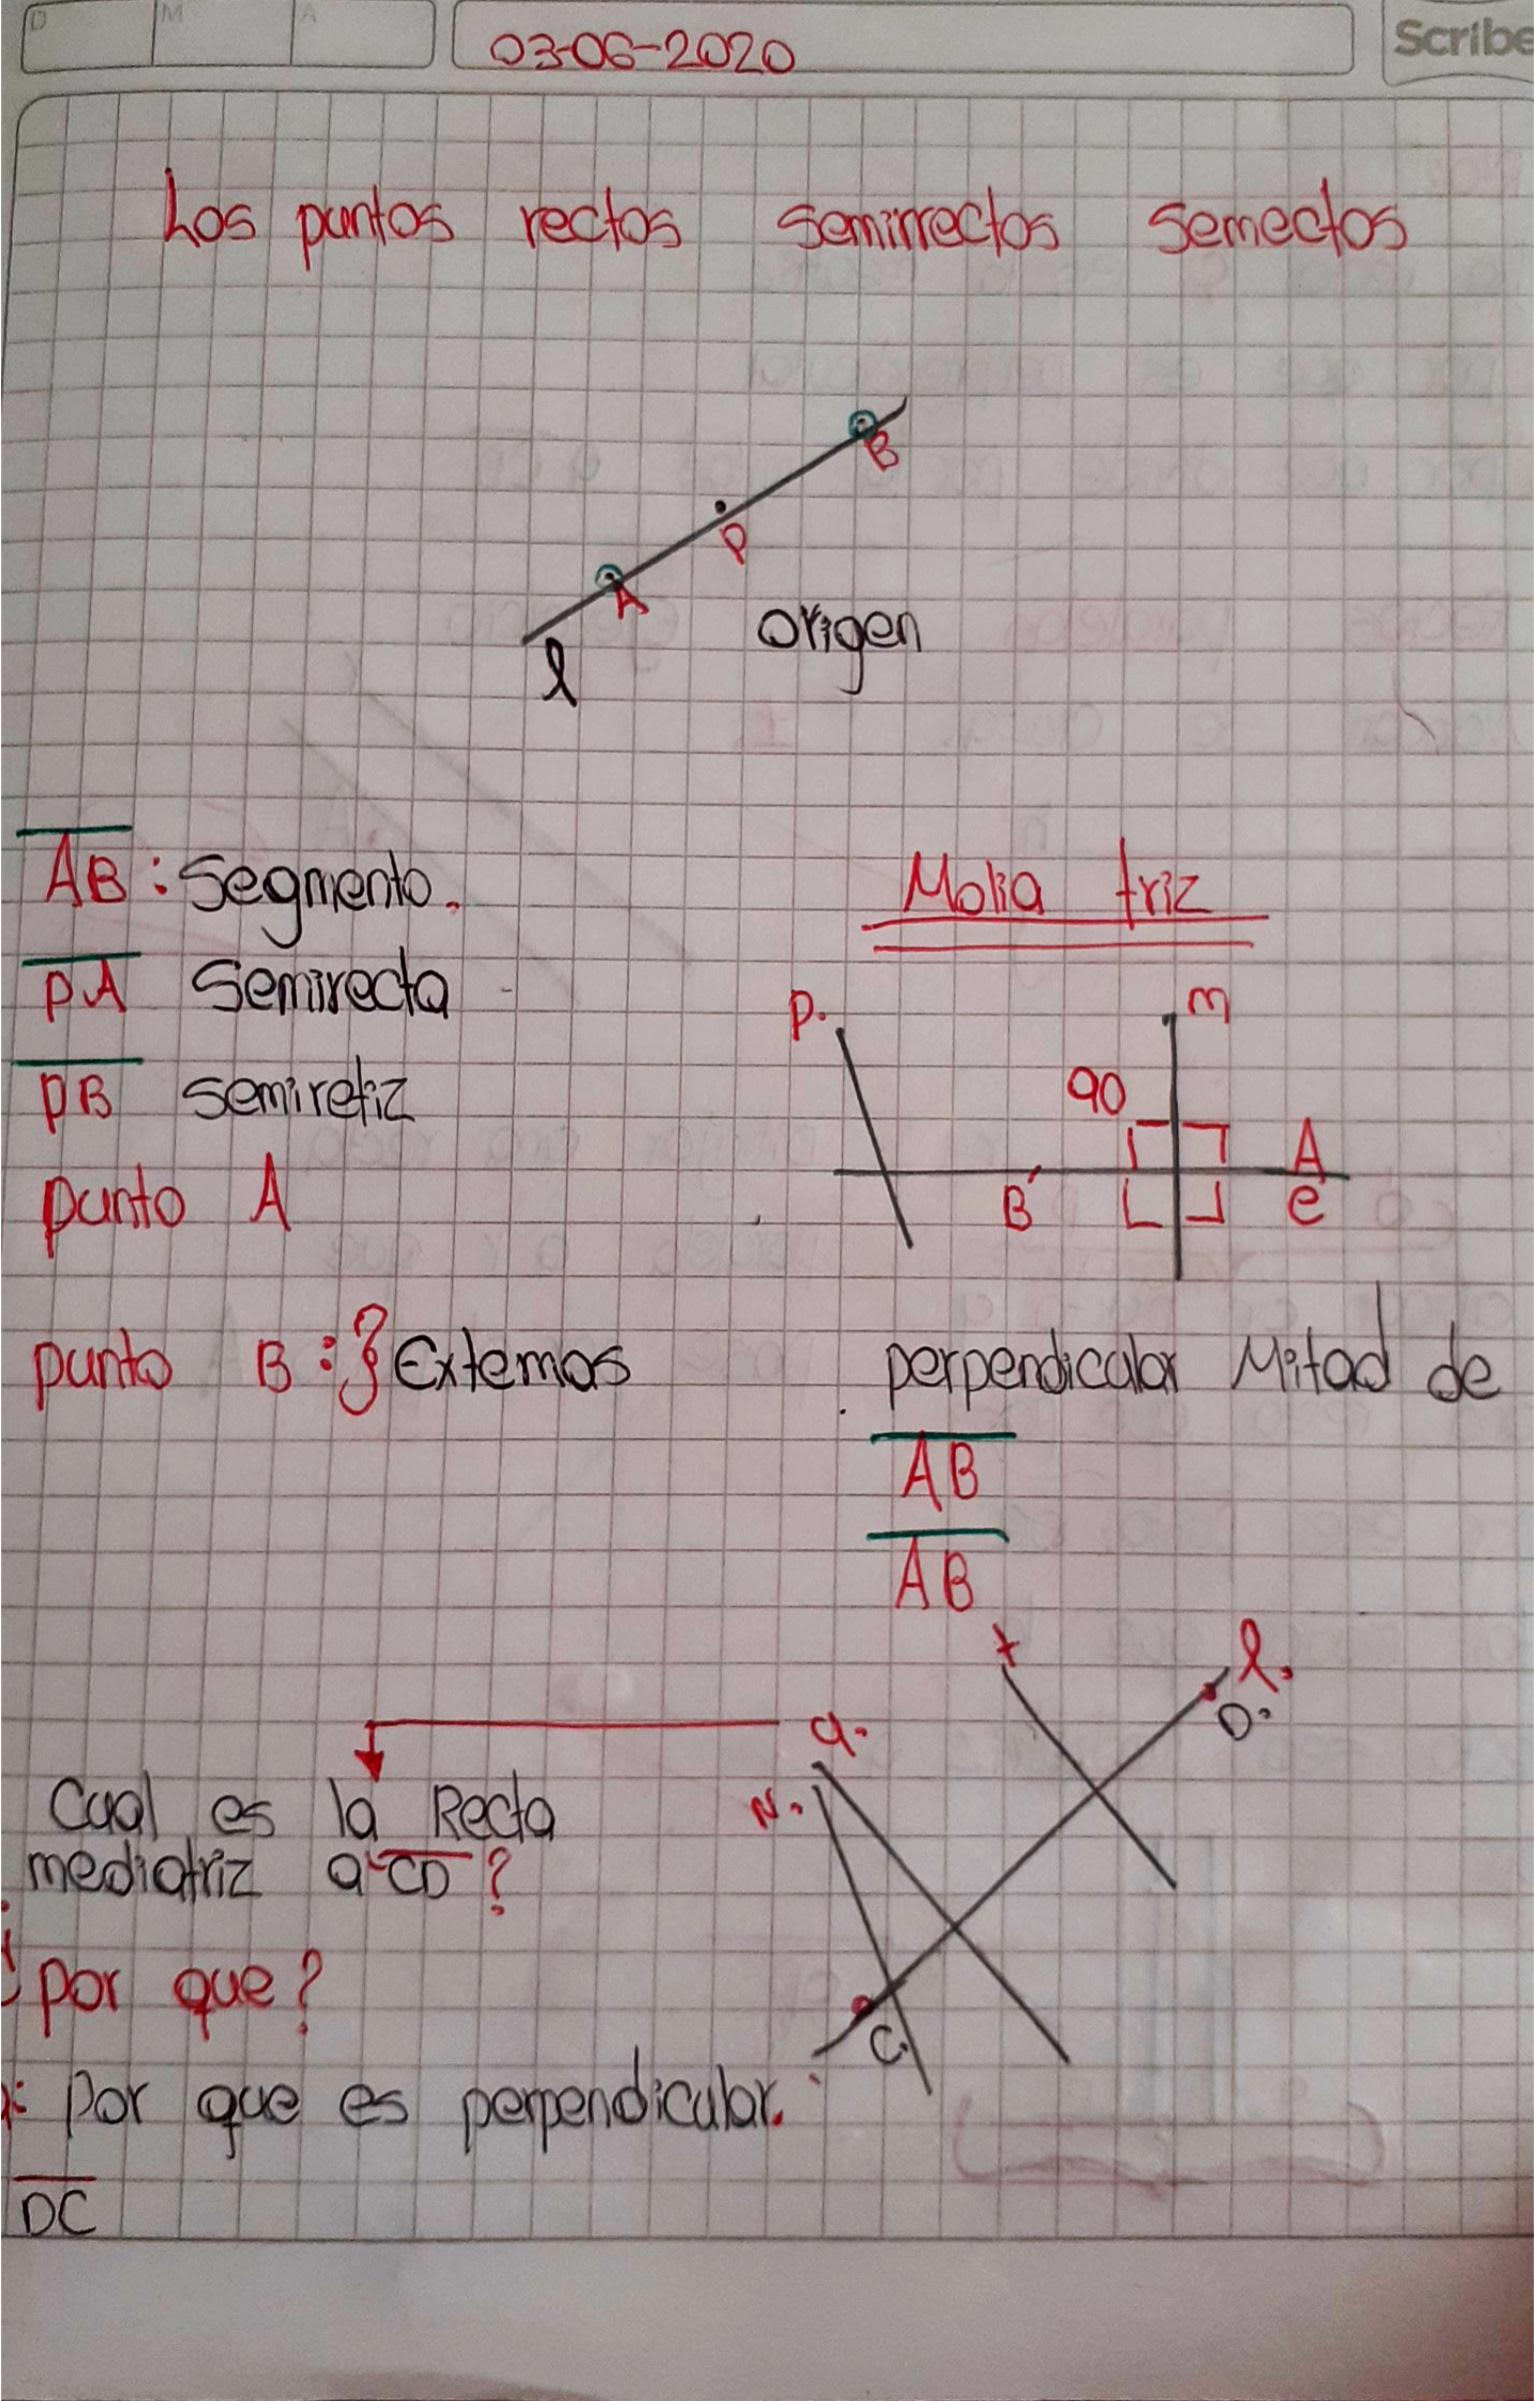 D M A
03-06-2020
Scribe
Los puntos rectos semirrectos semectos
B
P
A
l
Origen
AB : Segmento.
PA Semirecta
PB semiretiz
punto A
punto B : } Extemos
Molia triz
P.
m
90
A
B
e
perpendicular Mitad de
AB
AB
t
l.
D.
q.
N.
C.
Cual es la Recta
mediatriz a CD ?
¿Por que?
: Por que es perpendicular.
DC